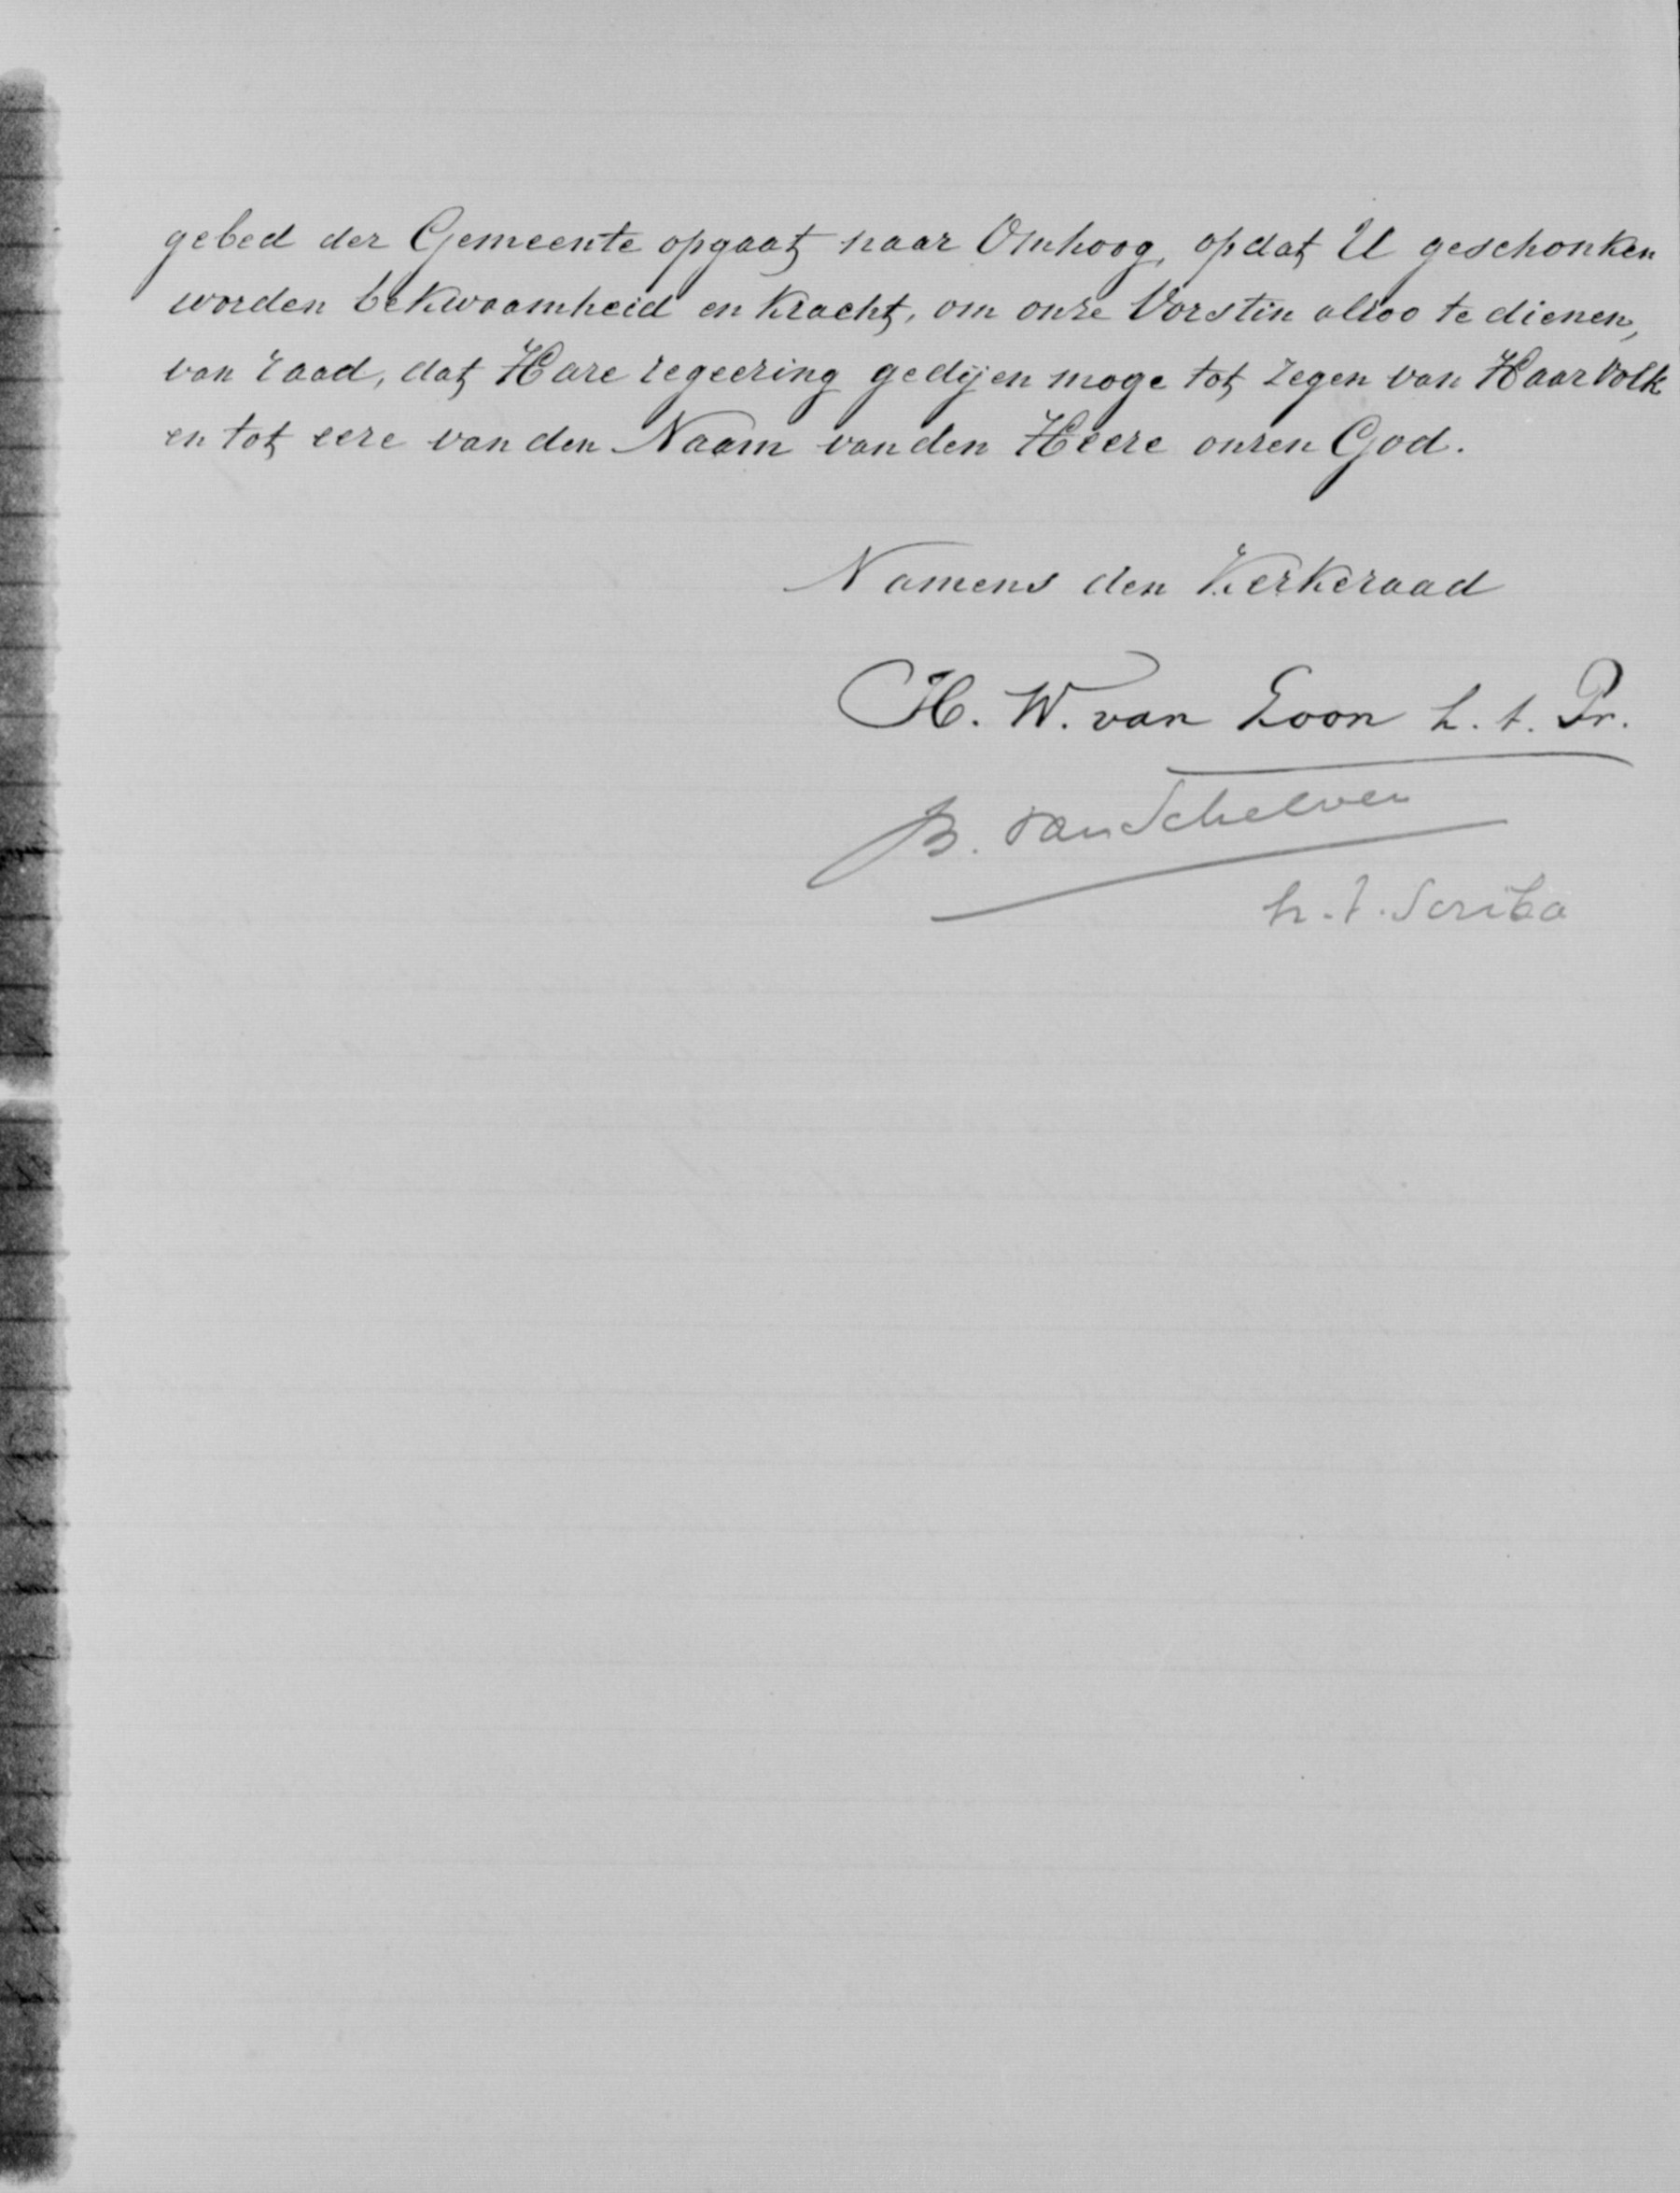 gebed der Gemeente opgaat naar Omhoog, opdat U geschonken
worden bekwaamheid en kracht, om onze Vorstin alzoo te dienen,
van raad, dat Hare regeering gedijen moge tot zegen van Haar Volk
en tot eere van den Naam van den Heere onzen God.
Namens den Kerkeraad
H. W. van Loon h. t. Pr.
B. van Schelven
h. t. Scriba